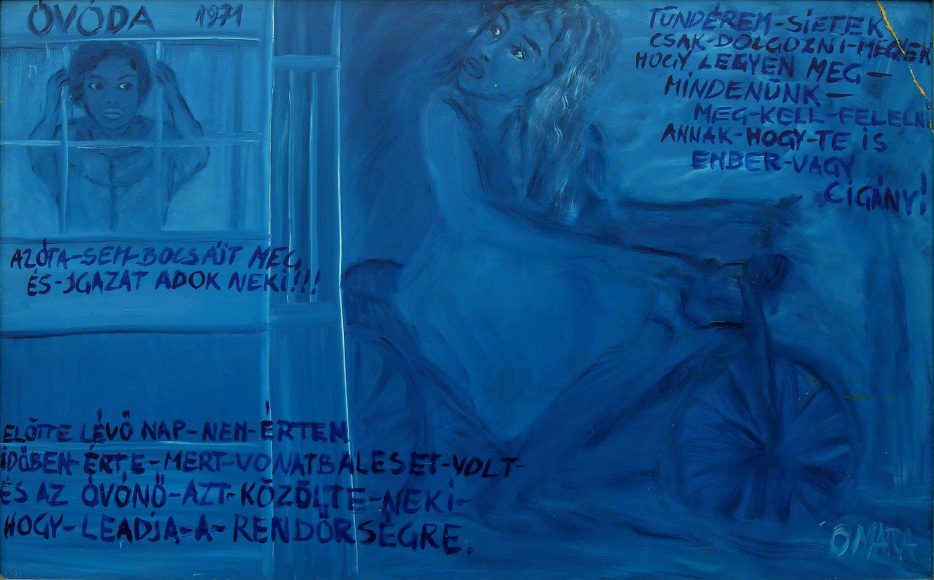 ÓVÓDA 1971
TÜNDÉREM-SIETEK
CSAK-DOLGOZNI-MEGYEK
HOGY LEGYEN MEG-
MINDENÜNK-
MEG-KELL-FELELNI
ANNAK-HOGY-TE IS
EMBER-VAGY
CIGÁNY!
AZÓTA-SEM-BOCSÁJT MEG,
ÉS-IGAZAT ADOK NEKI!!!
ELŐTTE LÉVŐ NAP-NEM-ÉRTEM
IDŐBEN-ÉRTE-MERT-VONATBALESET-VOLT-
ÉS AZ ÓVÓNŐ-AZT-KÖZÖLTE-NEKI-
HOGY-LEADJA-A-RENDŐRSÉGRE.
OMARA